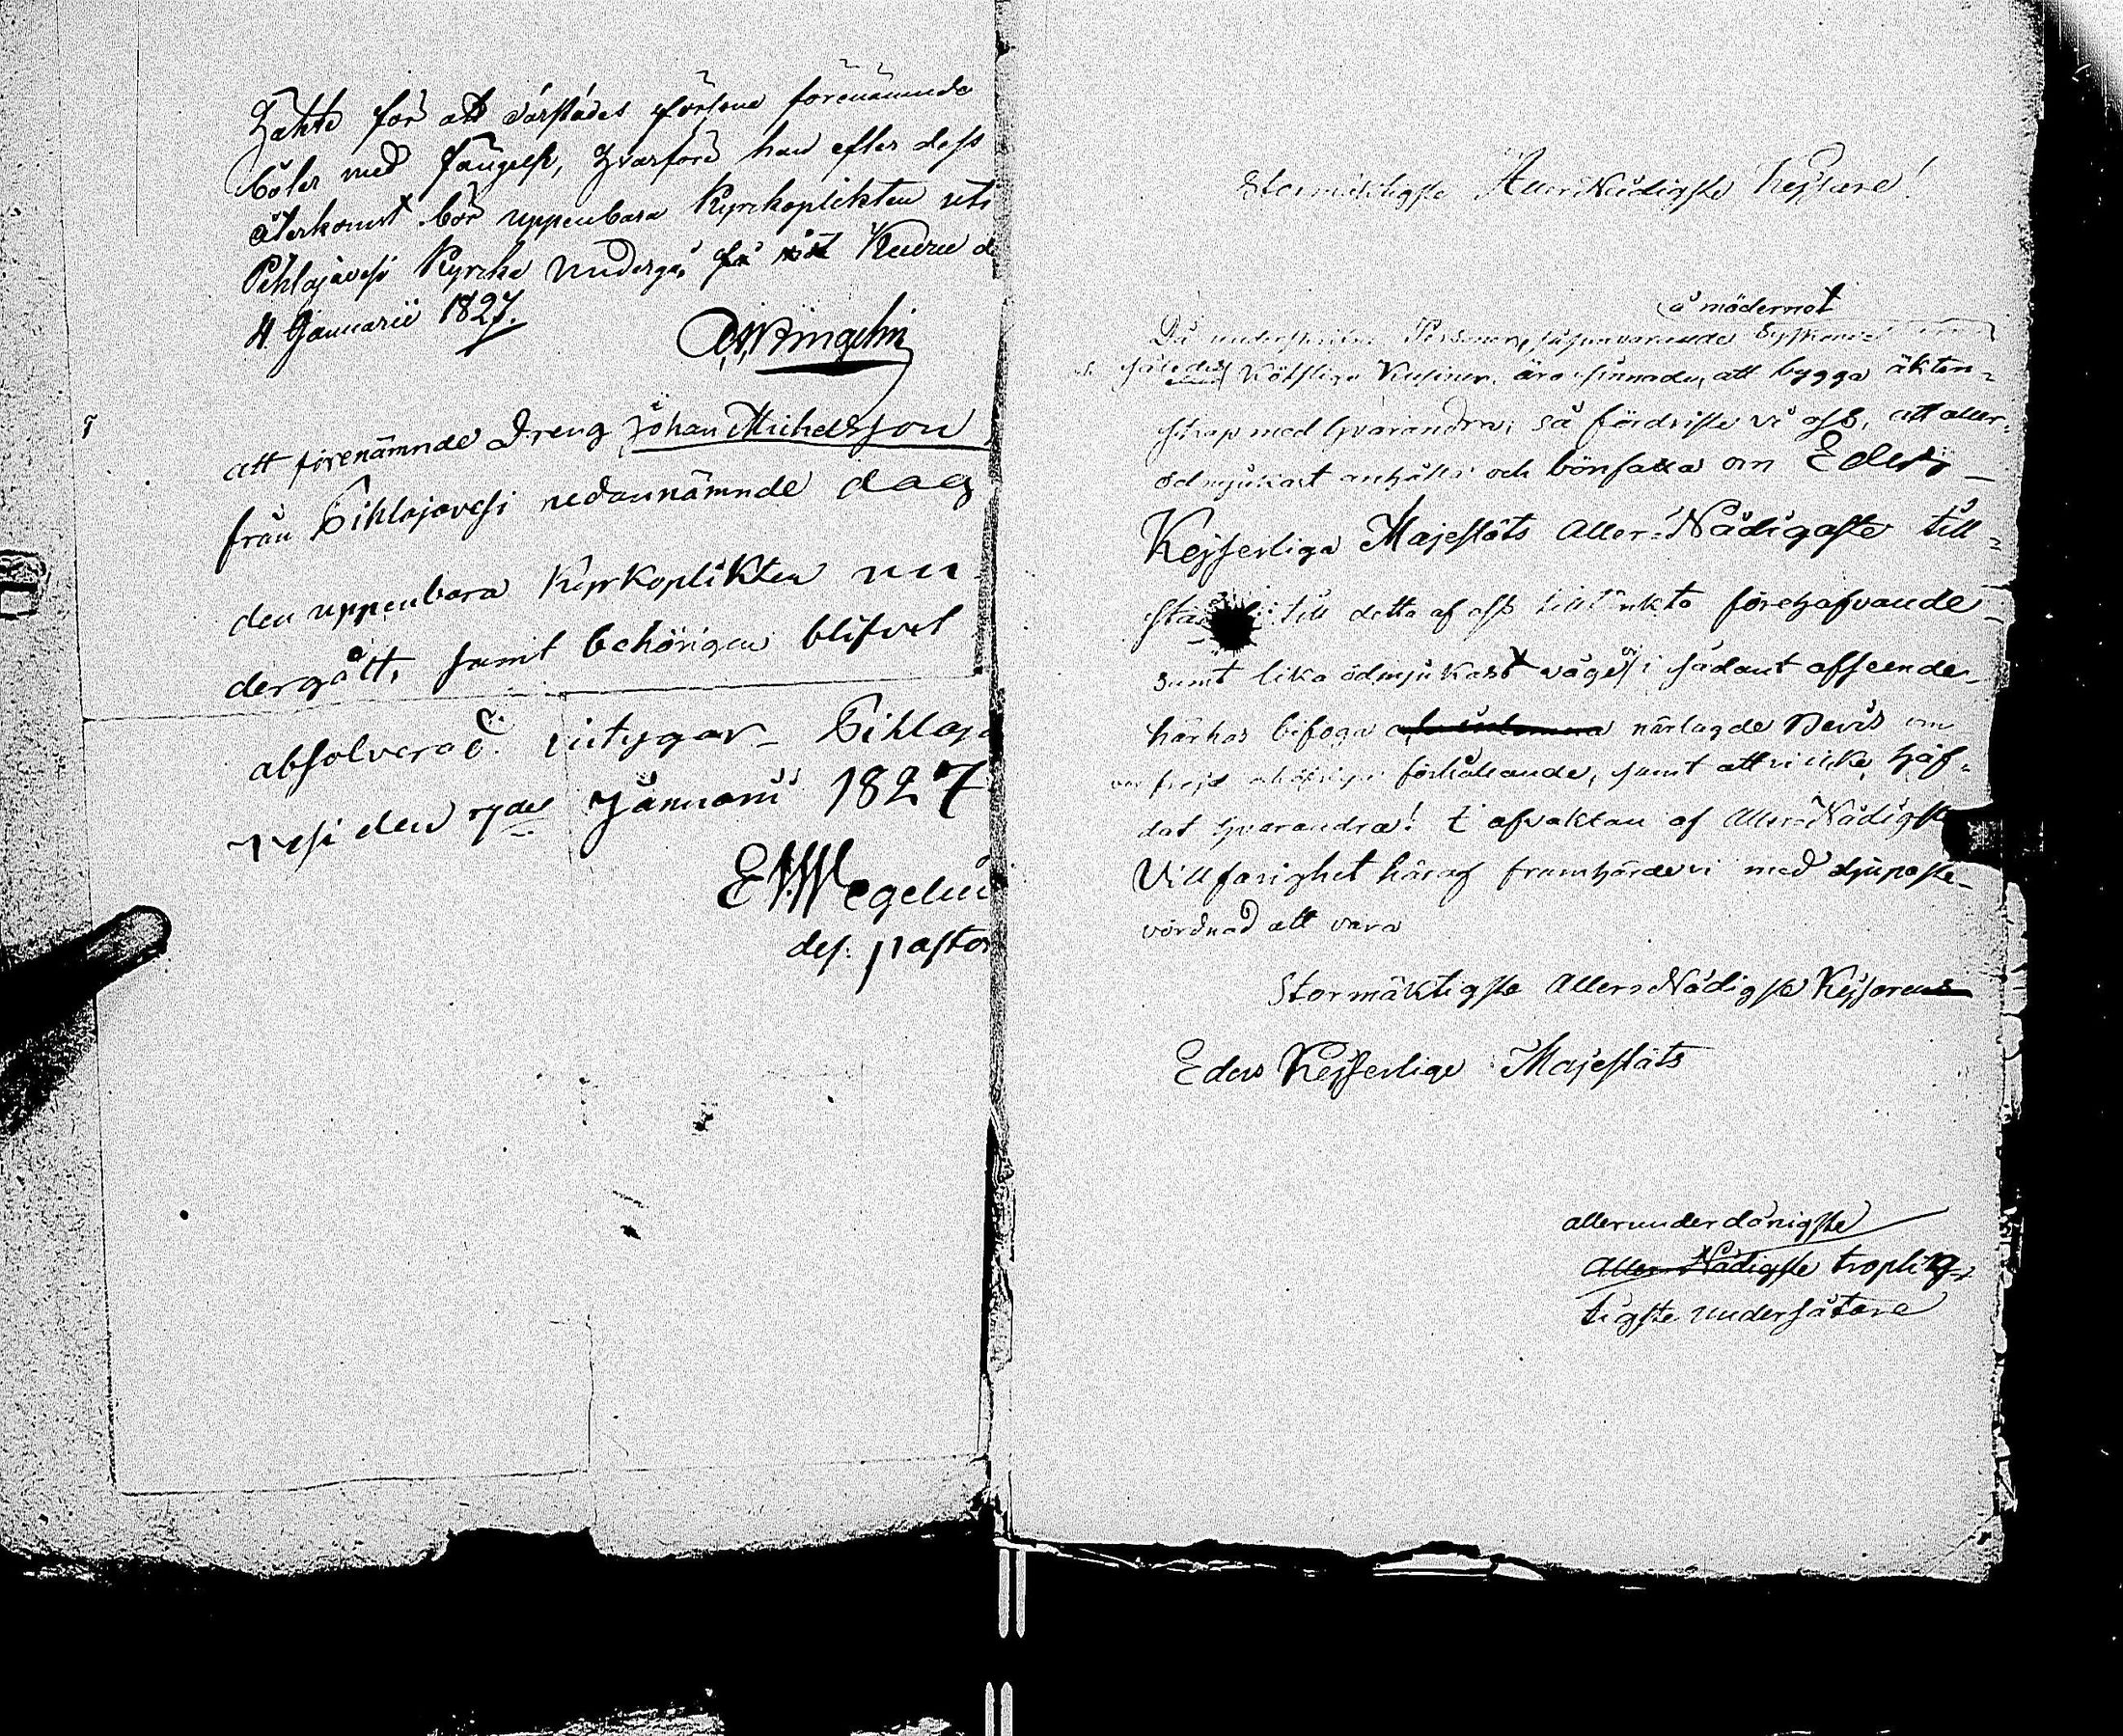 Häkte för att därstädes försona förenämnde
böter med fängelse, hvarföre han efter dess
återkomst bör uppenbara Kyrckoplikten uti
Pihlajavesi Kyrcka undergå Keuru d
4 Januarii 1827.
att förenämnde Dreng Johan Michelsson
från Pihlajavesi nedannämnde dag
den uppenbara Kyrkoplikten un-
dergått, samt behörigen blifvet
absolverad. intygar Pihlaja
vesi den 7de Januarii 1827
E. Wegelius
def. pastor
Stormäktigste Aller Nådigste Kejsare!
å mödernet
Då underskrifne Personer, Syskon
således Köttslige Kusiner, äro sinnade, att bygga äkten=
skap med hvarandra; så fördriste vi oss, att aller=
ödmjukast anhålla och bönfalla om Eders
Kejserliga Majestäts Aller=Nådigaste till=
stånd till detta af oss tilltänkta förehafvande
samt lika ödmjukast våge vi i sådant afseende
härhos bifoga närlagde Bevis om
förhållande, samt att vi icke häf=
dat hvarandra! I afvaktan af Aller=Nådigste
Villfarighet häraf framhärde vi med djupaste
vördnad att vara
Stormäktigste Aller=Nådigste Kejsarens
Eders Kejserlige Majestäts
allerunderdånigste
Aller Nådigste troplig=
tigste undersåtare